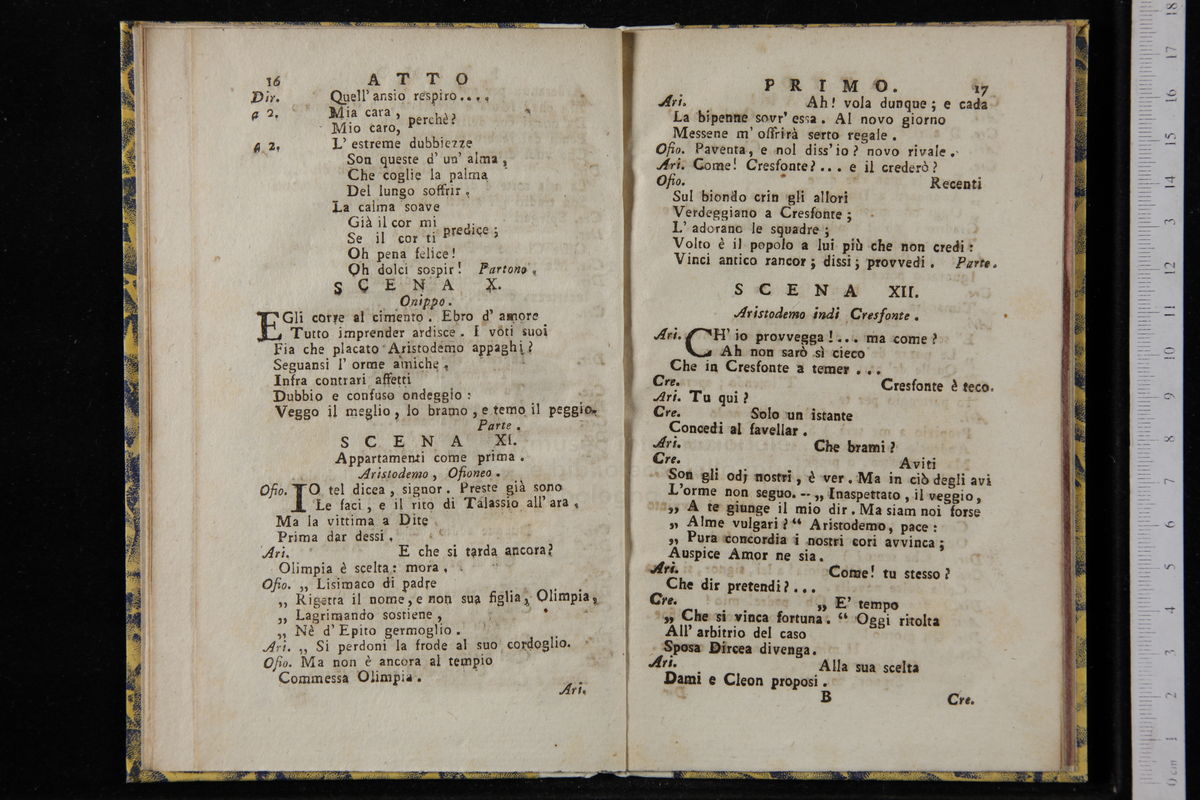 16 ATTO
Dir. Quell' ansio respiro....
a 2. Mia cara,
Mio caro, perchè?
a 2. L' estreme dubbiezze
Son queste d' un' alma,
Che coglie la palma
Del lungo soffrir.
La calma soave
Già il cor mi
Se il cor ti predice;
Oh pena felice!
Oh dolci sospir! Partono.
SCENA X.
Onippo.
EGli corre al cimento. Ebro d' amore
Tutto imprender ardisce. I voti suoi
Fia che placato Aristodemo appaghi?
Seguansi l' orme amiche.
Infra contrari affetti
Dubbio e confuso ondeggio:
Veggo il meglio, lo bramo, e temo il peggio.
Parte.
SCENA XI.
Appartamenti come prima.
Aristodemo, Ofioneo.
Ofio. IO tel dicea, signor. Preste già sono
Le faci, e il rito di Talassio all' ara,
Ma la vittima a Dite
Prima dar dessi.
Ari. E che si tarda ancora?
Olimpia è scelta: mora.
Ofio. „ Lisimaco di padre
„ Rigetta il nome, e non sua figlia, Olimpia,
„ Lagrimando sostiene,
„ Nè d' Epito germoglio.
Ari. „ Si perdoni la frode al suo cordoglio.
Ofio. Ma non è ancora al tempio
Commessa Olimpia.
Ari.
PRIMO. 17
Ari. Ah! vola dunque; e cada
La bipenne sovr' essa. Al novo giorno
Messene m' offrirà serto regale.
Ofio. Paventa, e nol diss' io? novo rivale.
Ari. Come! Cresfonte?... e il crederò?
Ofio. Recenti
Sul biondo crin gli allori
Verdeggiano a Cresfonte;
L' adorano le squadre;
Volto è il popolo a lui più che non credi:
Vinci antico rancor; dissi; provvedi. Parte.
SCENA XII.
Aristodemo indi Cresfonte.
Ari. CH' io provvegga!... ma come?
Ah non sarò sì cieco
Che in Cresfonte a temer...
Cre. Cresfonte è teco.
Ari. Tu qui?
Cre. Solo un istante
Concedi al favellar.
Ari. Che brami?
Cre. Aviti
Son gli odj nostri, è ver. Ma in ciò degli avi
L'orme non seguo. -- „ Inaspettato, il veggio,
„ A te giunge il mio dir. Ma siam noi forse
„ Alme vulgari? “ Aristodemo, pace:
„ Pura concordia i nostri cori avvinca;
Auspice Amor ne sia.
Ari. Come! tu stesso?
Che dir pretendi?...
Cre. „ E' tempo
„ Che si vinca fortuna. “ Oggi ritolta
All' arbitrio del caso
Sposa Dircea divenga.
Ari. Alla sua scelta
Dami e Cleon proposi.
B Cre.